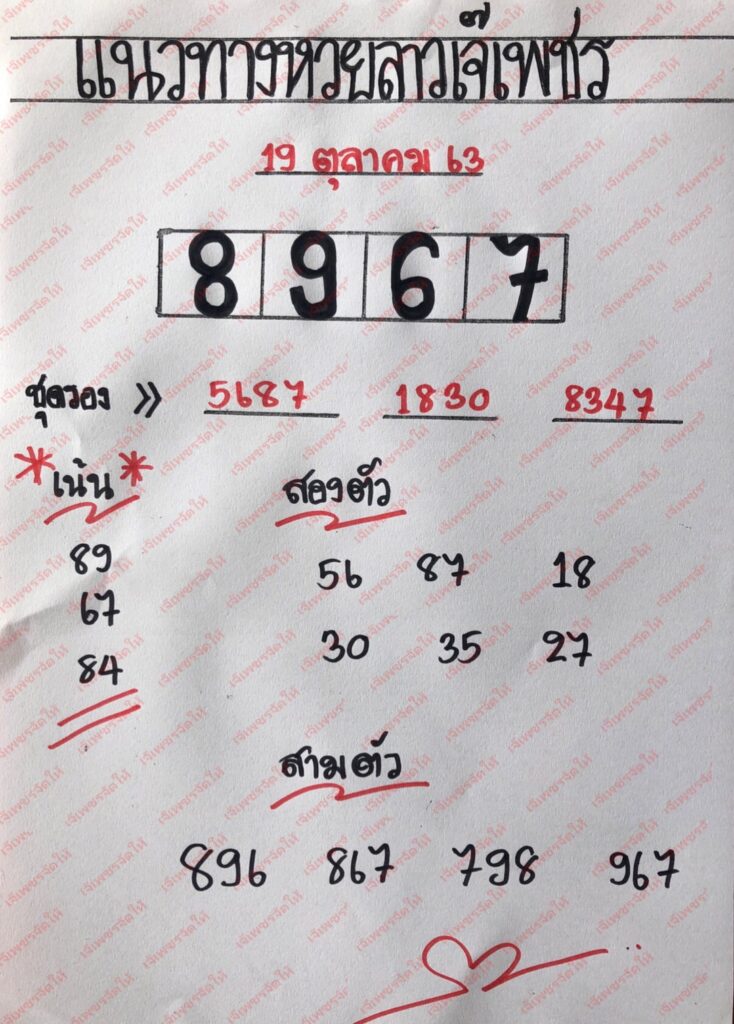 แนวทางหวยลาวเจ๊เพชร
19 ตุลาคม 63
8 9 6 7
ชุดรอง >> 5687 1830 8347
*เน้น*
89
67
84
สองตัว
56 87 18
30 35 27
สามตัว
896 867 798 967
เจ๊เพชรจัดให้